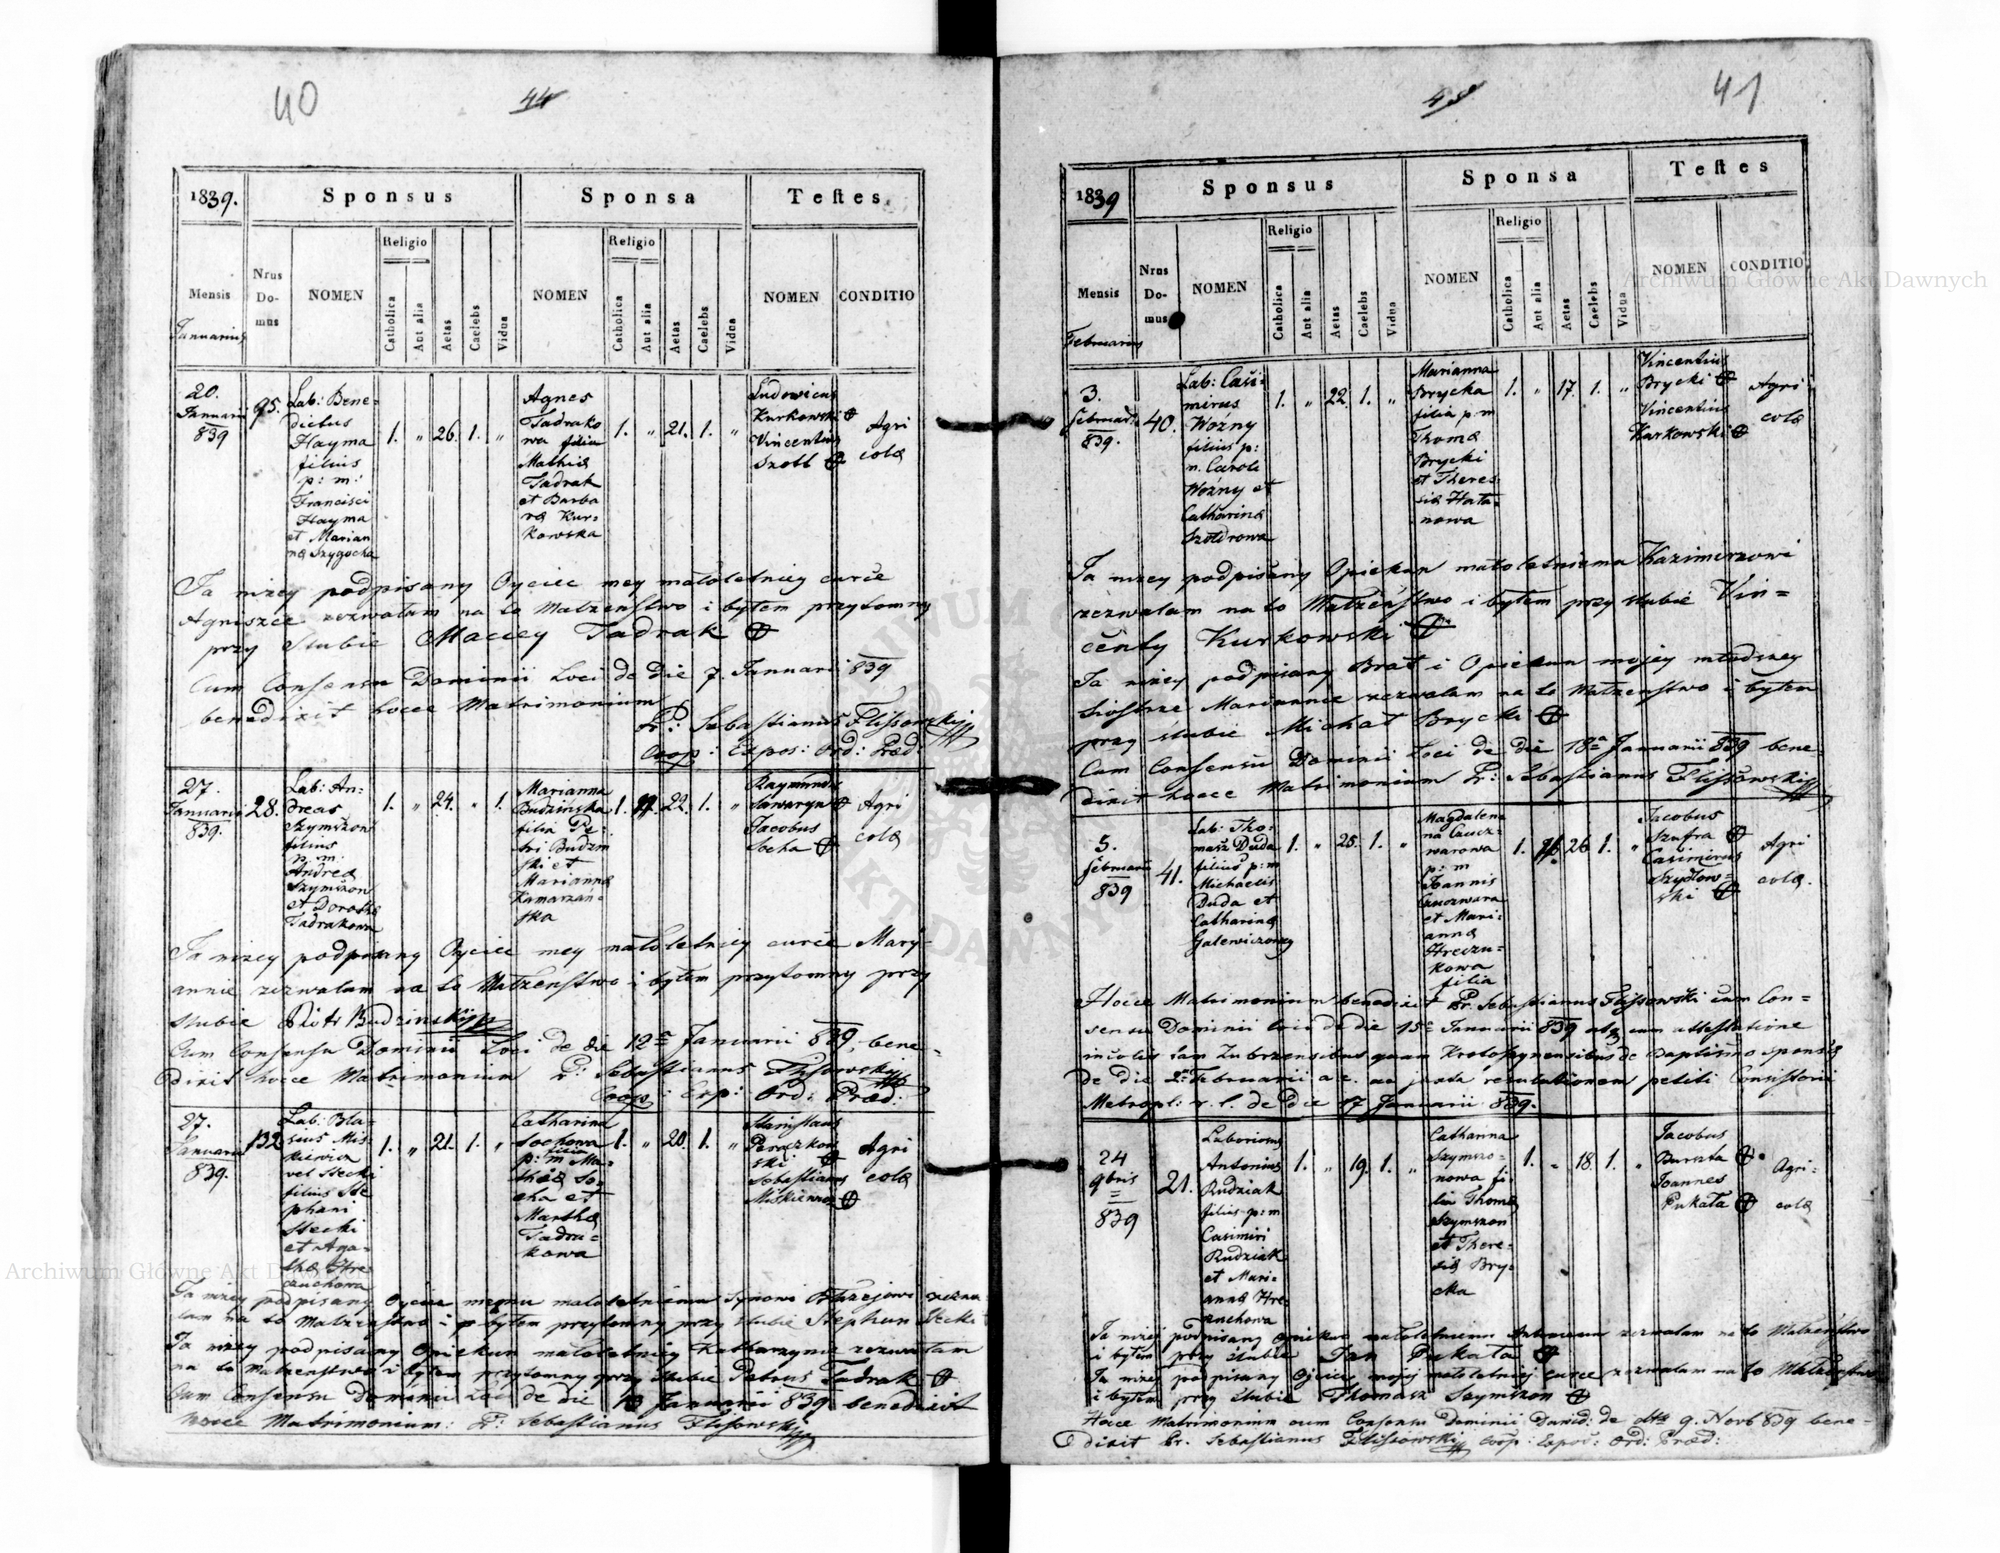 40
44
1839.
Sponsus
Sponsa
Testes
Mensis
Januarius
Nrus Do-mus
NOMEN
Religio
Catholica
Aut alia
Aetas
Caelebs
Vidua
NOMEN
Religio
Catholica
Aut alia
Aetas
Caelebs
Vidua
NOMEN
CONDITIO
20.
Januarii
839
95.
Lab: Bene-
dictus
Hayma
filius
p: m:
Francisci
Hayma
et Marian
næ Szygocka
1. " 26. 1. "
Agnes
Tadrako
wa filia
Mathiæ
Tadrak
et Barba
ræ Kur-
kowska
1. " 21. 1. "
Ludovicus
Kurkowski
Vincentius
Szott
Agri
colæ
Ja nizey podpisany Oyciec mey małoletniey curce
Agniszce zezwalam na to Małzenstwo i byłem przytomny
przy slubie Maciey Tadrak
Cum Consensu Dominii Loci de die 7. Januarii 839
benedixit hocce Matrimonium
Pr: Sebastianus Flissowski
Coop: Expos: Ord: Præd:
27.
Januarii
839.
28.
Lab: An-
dreas
Szymszon
filius
p. m.
Andreæ
Szymszon
et Dorothæ
Tadrakowa
1. " 24. " 1.
Marianna
Budzinska
filia Pe-
tri Budzin
ski et
Mariannæ
Kamarzan-
ska
1. 22. 1. "
Raymundus
Sawaryn
Jacobus
Socha
Agri
colæ
Ja nizey podpisany Oyciec mey małoletniey curce Mary-
annie zezwalam na to Małzenstwo i byłem przytomny przy
slubie Piotr Budzinski
Cum Consensu Dominii Loci de die 12a Januarii 839, bene-
dixit hocce Matrimonium Pr: Sebastianus Flissowski
Coop: Exp: Ord: Præd:
27.
Januarii
839.
132
Lab: Bla-
sius Mis-
kiewicz
vel Stecki
filius Ste
phani
Stecki
et Aga-
thæ Hre-
czuchowa
1. " 21. 1. "
Catharina
Sochowa
filia
p: m Ma-
thiæ So-
cha et
Marthæ
Tadra-
kowa
1. " 20. 1. "
Stanislaus
Sebastianus
Miskiewicz
Agri
colæ
Ja nizey podpisany Oyciec memu małoletniemu Synowi Błazejowi zezwa
lam na to Małzenstwo i byłem przytomny przy slubie Stephan Stecki
Ja nizey podpisany Opiekun małoletniey Katharzynie zezwalam
na to Małzenstwo i byłem przytomny przy slubie Petrus Tadrak
Cum Consensu Dominii Loci de die 10 Januarii 839 benedixit
hocce Matrimonium: Pr: Sebastianus Flissowski
41
45
1839
Sponsus
Sponsa
Testes
Mensis
Februarius
Nrus Do-mus
NOMEN
Religio
Catholica
Aut alia
Aetas
Caelebs
Vidua
NOMEN
Religio
Catholica
Aut alia
Aetas
Caelebs
Vidua
NOMEN
CONDITIO
3.
Februarii
839.
40.
Lab: Casi-
mirus
Woźny
filius p:
m. Caroli
Woźny et
Catharinæ
Szołdrowa
1. " 22. 1. "
Marianna
Brycka
filia p: m
Thomæ
Brycki
et There-
siæ Hata-
nowa
1. " 17. 1. "
Vincentius
Brycki
Vincentius
Kurkowski
Agri
colæ
Ja nizey podpisany Opiekun małoletniemu Kazimirzowi
zezwalam na to Małzenstwo i byłem przy slubie Vin-
centy Kurkowski
Ja nizey podpisany Brat i Opiekun mojey młodszey
Siostrze Mariannie zezwalam na to Małzenstwo i byłem
przy slubie Michał Brycki
Cum Consensu Dominii Loci de die 18a Januarii 839 bene-
dixit hocce Matrimonium Pr: Sebastianus Flissowski
5.
Februarii
839
41.
Lab: Tho-
masz Duda
filius p: m
Michaelis
Duda et
Catharinæ
Galewiczowy
1. " 25. 1. "
Magdalena
p: m
Joannis
et Mari-
annæ
Hreczu-
kowa
filia
1. 26 1. "
Jacobus
Szafra
Casimirus
Szydłow-
ski
Agri
colæ.
Hocce Matrimonium benedixit Pr. Sebastianus Flissowski cum Con-
sensu Dominii loci de die 15a Januarii 839 atq cum attestatione
incolis tam Zubrzensibus quam de baptismo sponsæ
de die 2a Februarii a. c. juxta resolutionem petiti Consistorii
Metropl: r. l. de die 17 Januarii 839.
24
9bris
839
21.
Laboriosus
Antonius
Rudziak
filius p: m
Casimiri
Rudziak
et Mari-
annæ Hre-
czuchowa
1. " 19. 1. "
Catharina
Szymszo-
nowa fi-
lia Thomæ
Szymszon
et There-
siæ Bry-
cka
1. " 18. 1. "
Jacobus
Burszta
Joannes
Pukała
Agri-
colæ
Ja nizej podpisany Opiekun małoletniemu Antoniemu zezwalam na to Małzenstwo
i byłem przy slubie Jan Pukała
Ja nizej podpisany Ojciec mojej małoletniej curce zezwalam na to Małzenstwo
i byłem przy slubie Thomasz Szymszon
Hocce Matrimonium cum Consensu Dominii Dawid: de dto 9. Novb 839 bene-
dixit Pr. Sebastianus Flissowski Coop: Expos: Ord: Præd:
Archiwum Główne Akt Dawnych
Archiwum Główne Akt Dawnych